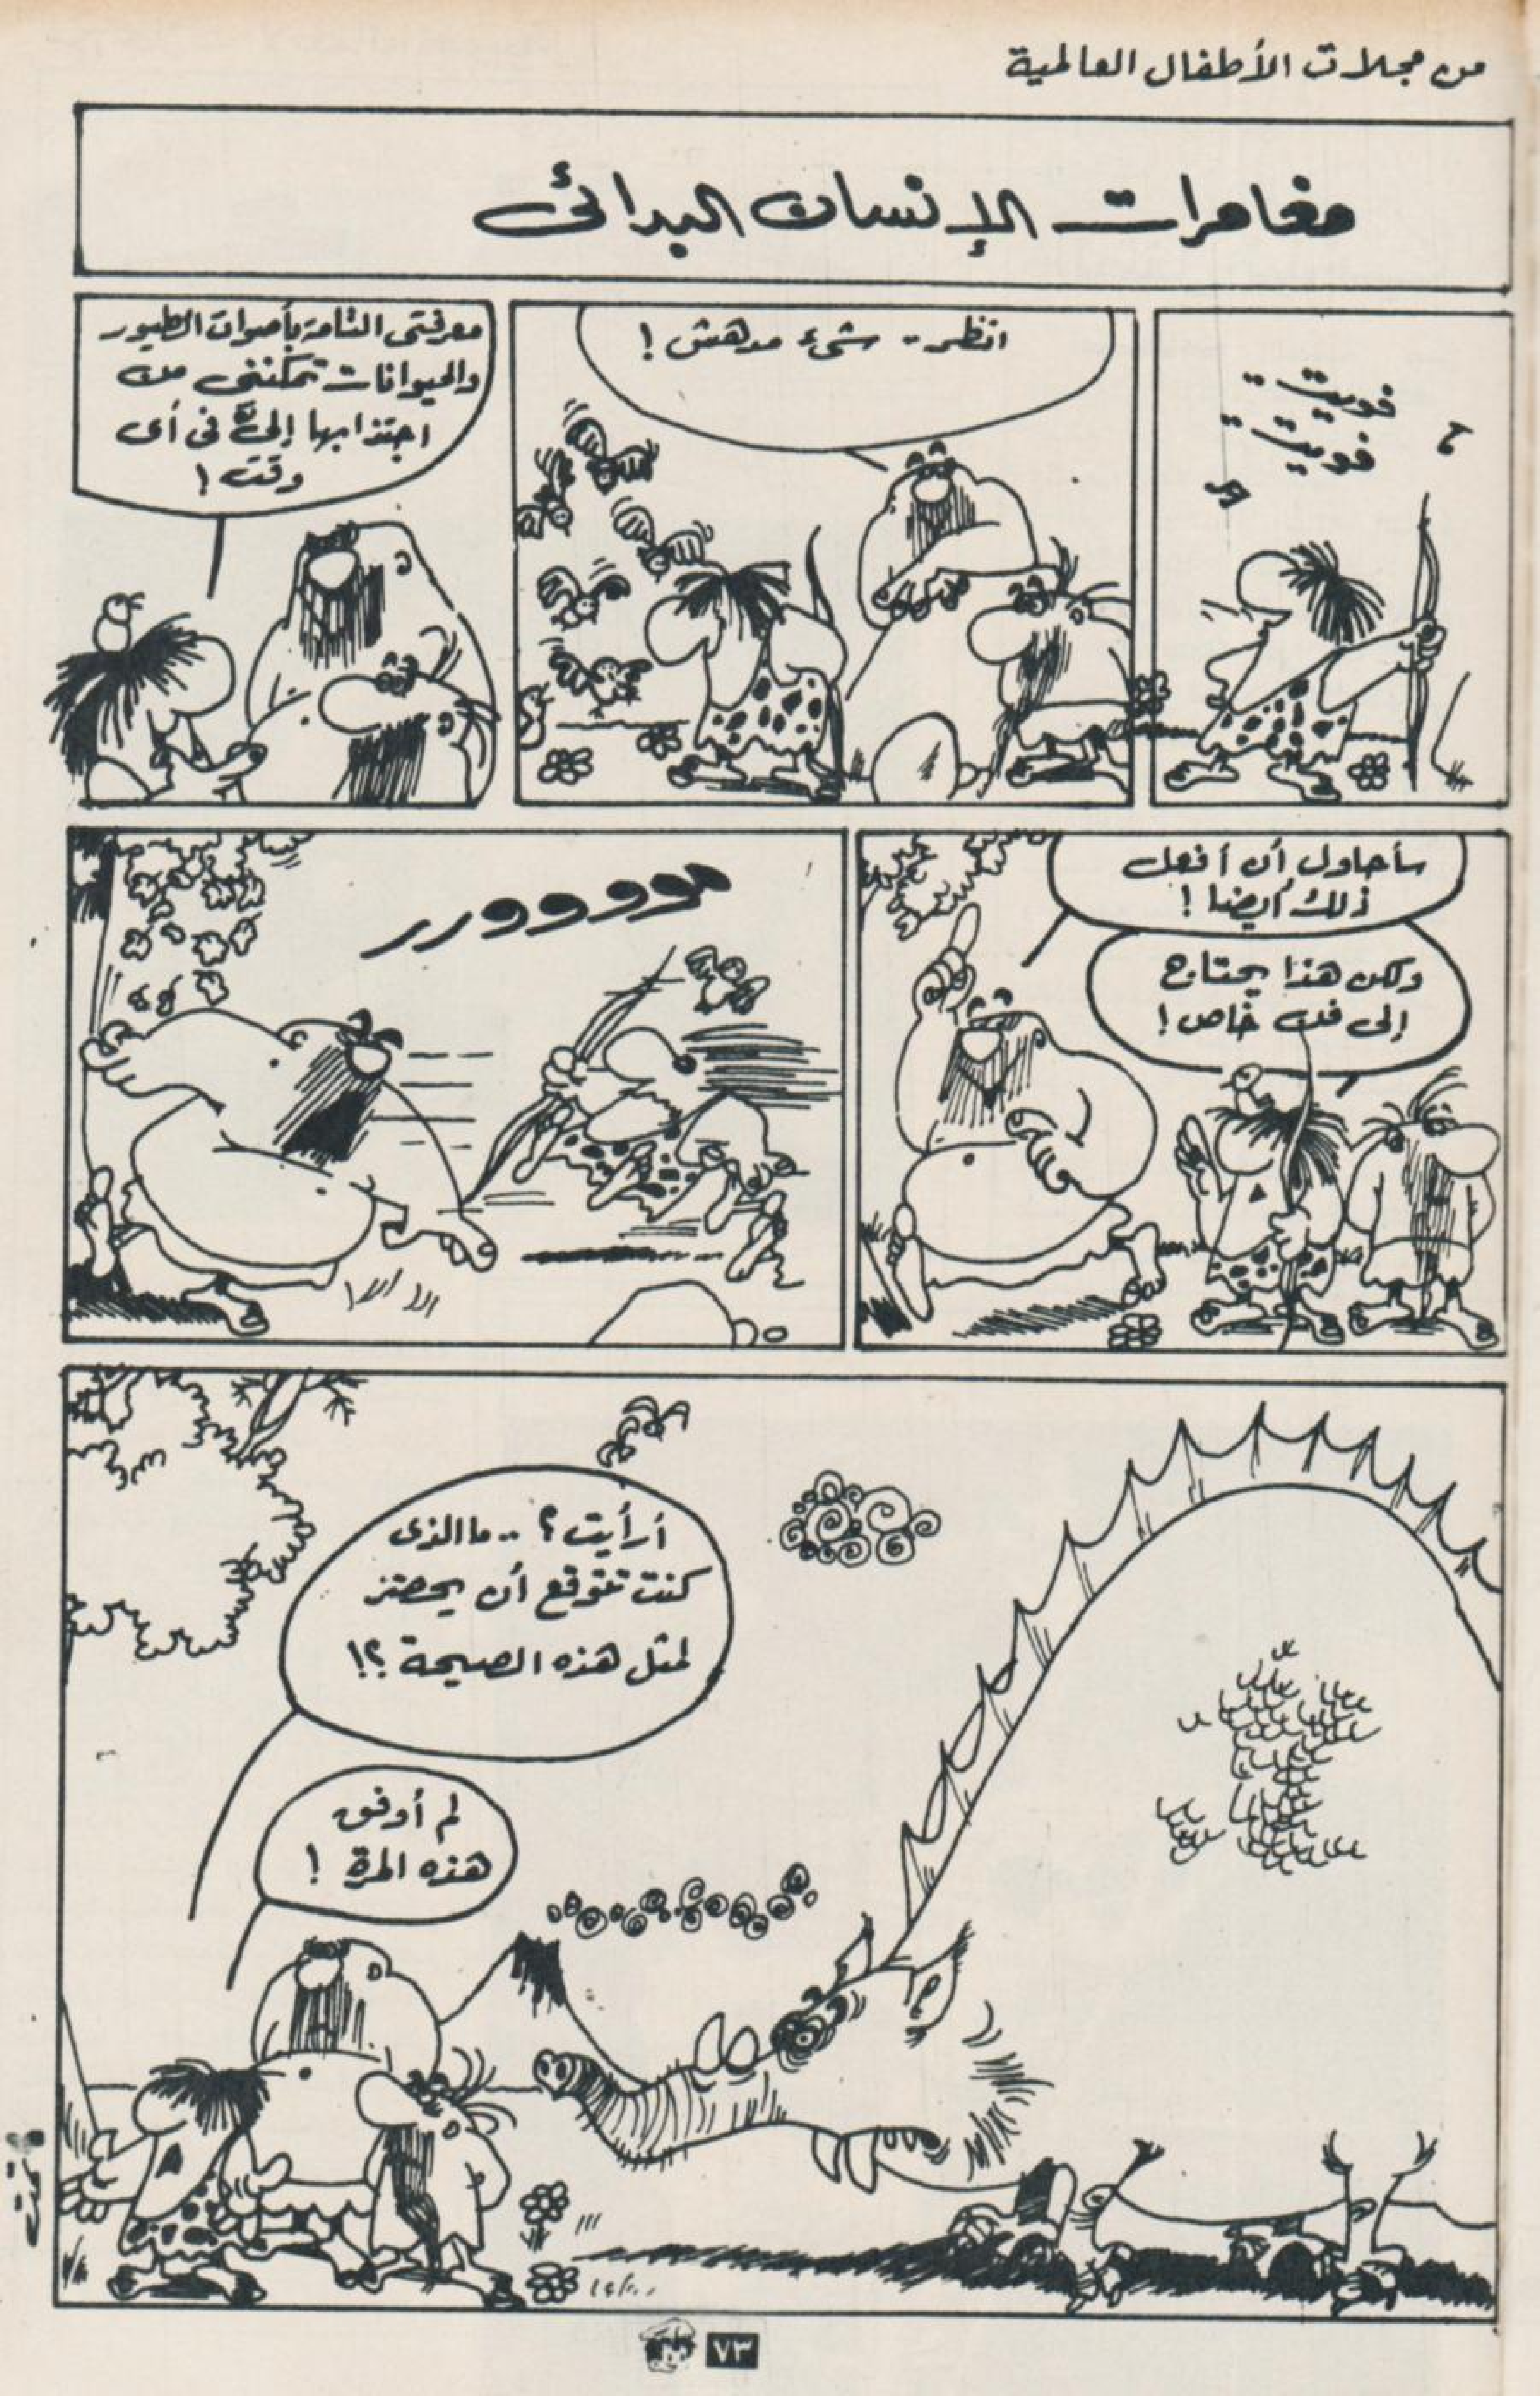 من مجلات الأطفال العالمية
مغامرات الإنسان البدائى
فويت ..
فويت ..
انظر .. شىء مدهش !
معرفتى التامة بأصوات الطيور
والحيوانات تمكننى من
اجتذابها إلىّ فى أى
وقت !
سأحاول أن أفعل
ذلك أيضا !
ولكن هذا يحتاج
إلى فن خاص !
مووووورر
أرأيت ؟ .. ما الذى
كنت تتوقع أن يحضر
لمثل هذه الصيحة ؟!
لم أوفق
هذه المرة !
تمت
٧٣